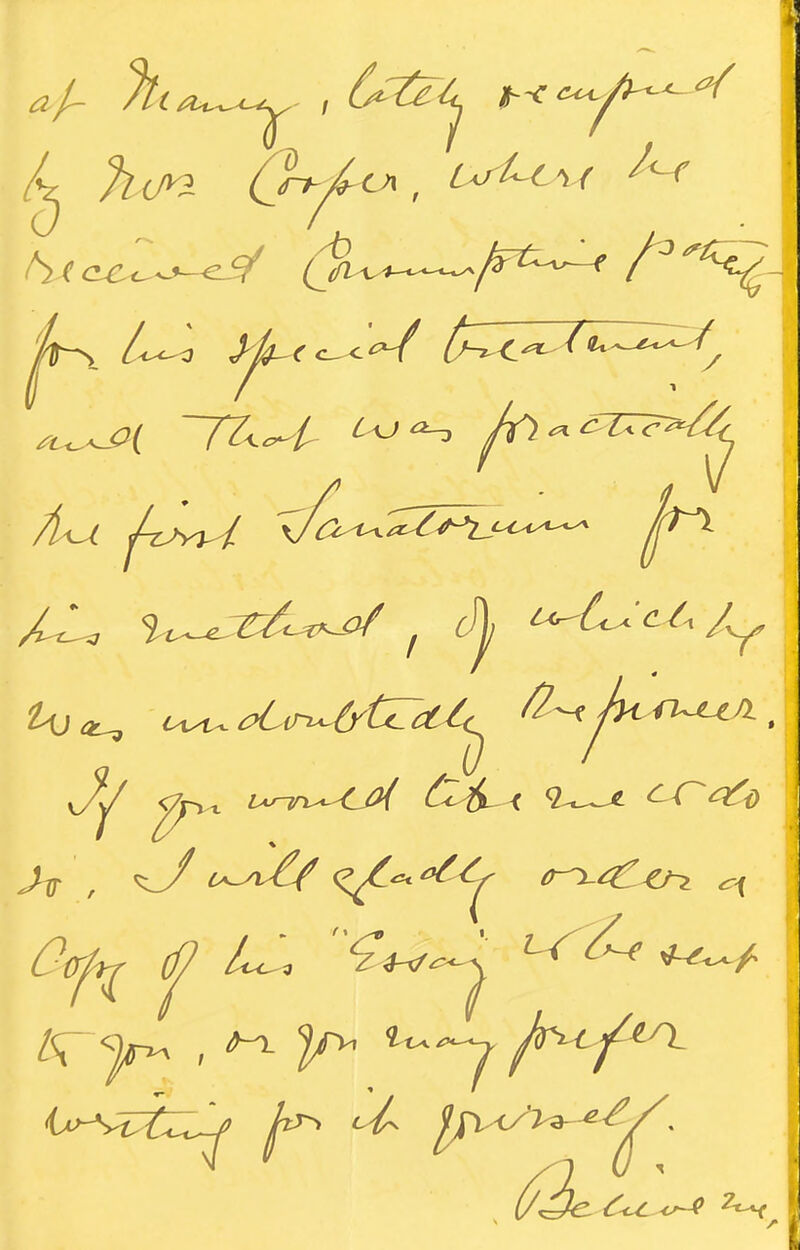 at Maney, lately occupied
by Mrs Cooper, where he
received Consumptive patients
for his special treatment,
and that was practically
the first Sanatorium for
his method, of which he
was undoubtedly the pioneer.
If you would like me to do
so, I will gladly order a
Copy of his "Essay to be sent
to you, or you may prefer
writing for it yourself.
Believe me,